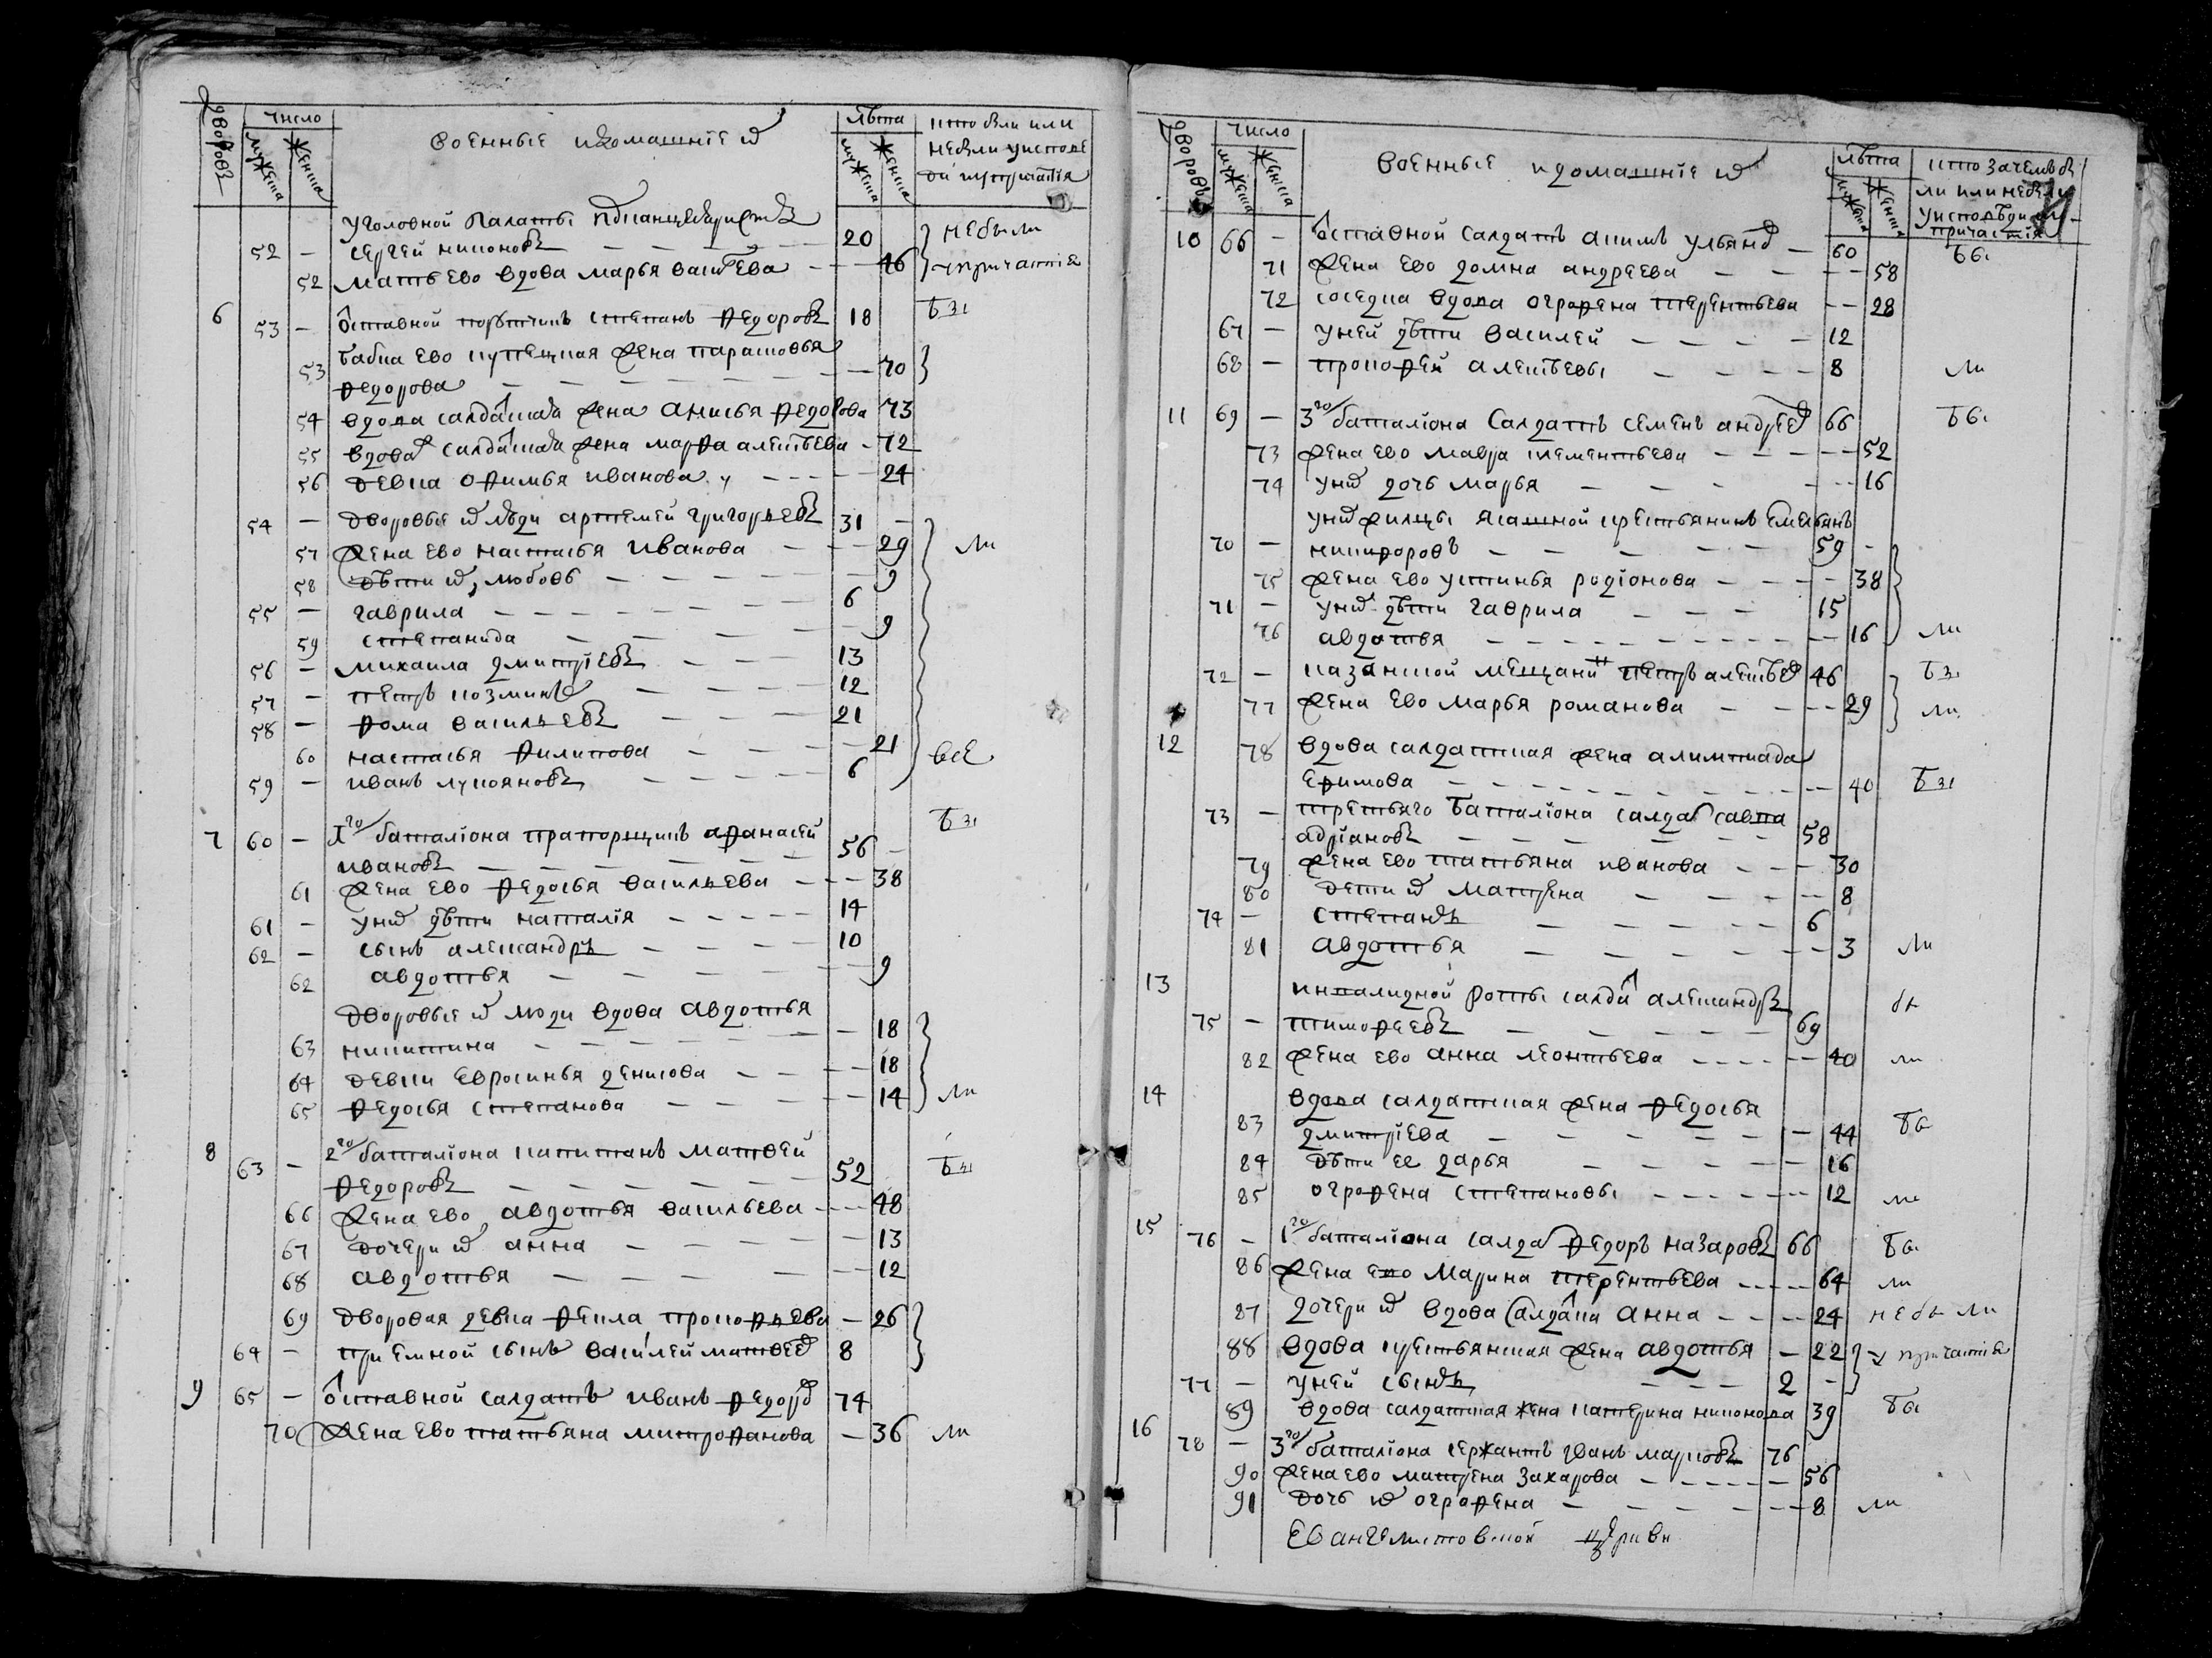 дворовъ
число
мужеска
женска
военныє и домашніє ихъ
лѣта
мужеска
женска
кто были или
не были у исповѣ
ди и у причастія
уголовной палаты канцеляристъ
52 – сергей никоновъ – 20 не были
52 мать ево вдова марья васильева – 46 у причастія
6 53 – отставной порутчикъ степанъ федоровъ 18 бы
53 бабка ево купецкая жена парасковья
федорова – 70
54 вдова салдатская жена анисья федорова 73
55 вдова салдатская жена марфа алексѣева – 72
56 девка офимья иванова – 24
54 – дворовые ихъ люди артемей григорьевъ 31 –
57 жена ево настасья иванова – 29 ли
58 дѣти ихъ любовь – 9
55 – гаврила – 6
59 степанида – 9
56 – михаила дмитріевъ – 13
57 – петръ козминъ – 12
58 – фома васильевъ – 21
60 настасья филипова – 21 все
59 – иванъ лукояновъ – 6
7 60 – 1го баталіона прапорщикъ афанасей бы
ивановъ – 56 –
61 жена ево федосья васильева – 38
61 – у нихъ дѣти наталія – 14
62 – сынъ александръ – 10
62 авдотья – 9
дворовые ихъ люди вдова авдотья
63 никитина – 18
64 девки евросинья денисова – 18
65 федосья степанова – 14 ли
8 63 – 2го баталіона капитанъ матвей
федоровъ – 52 бы
66 жена ево авдотья васильева – 48
67 дочери ихъ анна – 13
68 авдотья – 12
69 дворовая девка фекла прокофьева – 26
64 – приемной сынъ василей матвеевъ 8
9 65 – отставной салдатъ иванъ федоровъ 74
70 жена ево татьяна митрофанова – 36 ли
дворовъ
число
мужеска
женска
военныє и домашніє ихъ
лѣта
мужеска
женска
кто зачемъ бы
ли или небыли
у исповѣди и у
причастія
10 66 – отставной салдатъ акимъ ульяновъ – 60 бы
71 жена ево домна андреева – 58
72 соседка вдова ографена терентьева – 28
67 – у ней дѣти василей – 12
68 – прокофей алексѣевы – 8 ли
11 69 – 3го баталіона салдатъ семенъ андреевъ 66 бы
73 жена ево мавра климентьева – 52
74 у нихъ дочь марья – 16
у нихъ жильцы ясашной крестьянинъ емельянъ
70 – никифоровъ – 59 –
75 жена ево устинья родіонова – 38
71 – у нихъ дѣти гаврила – 15
76 авдотья – 16 ли
72 – казанской мещанинъ петръ алексѣевъ 46 бы
77 жена ево марья романова – 29 ли
12 78 вдова салдатская жена алимпиада
ефимова – 40 бы
73 – третьяго баталіона салдатъ савва
адріановъ – 58
79 жена ево татьяна иванова – 30
80 дети ихъ матрена – 8
74 – степанъ – 6
81 авдотья – 3 ли
13 инвалидной роты салдатъ александръ бы
75 – тимофеевъ – 69
82 жена ево анна леонтьева – 40 ли
14 вдова салдатская жена федосья
83 дмитріева – 44 бы
84 дѣти ее дарья – 16
85 ографена степановы – 12 ли
15 76 – 1го баталіона салдатъ федоръ назаровъ 66 бы
86 жена ево марина терентьева – 64 ли
87 дочери ихъ вдова салдатка анна – 24 не бы ли
88 вдова крестьянская жена авдотья – 22 у причастія
77 – у ней сынъ – 2 –
89 вдова салдатская жена катерина никонова 39 бы
16 78 – 3го баталіона сержантъ иванъ марковъ 76
90 жена ево матрена захарова – 56
91 дочь ихъ ографена – 8 ли
Евангелистовской церкви